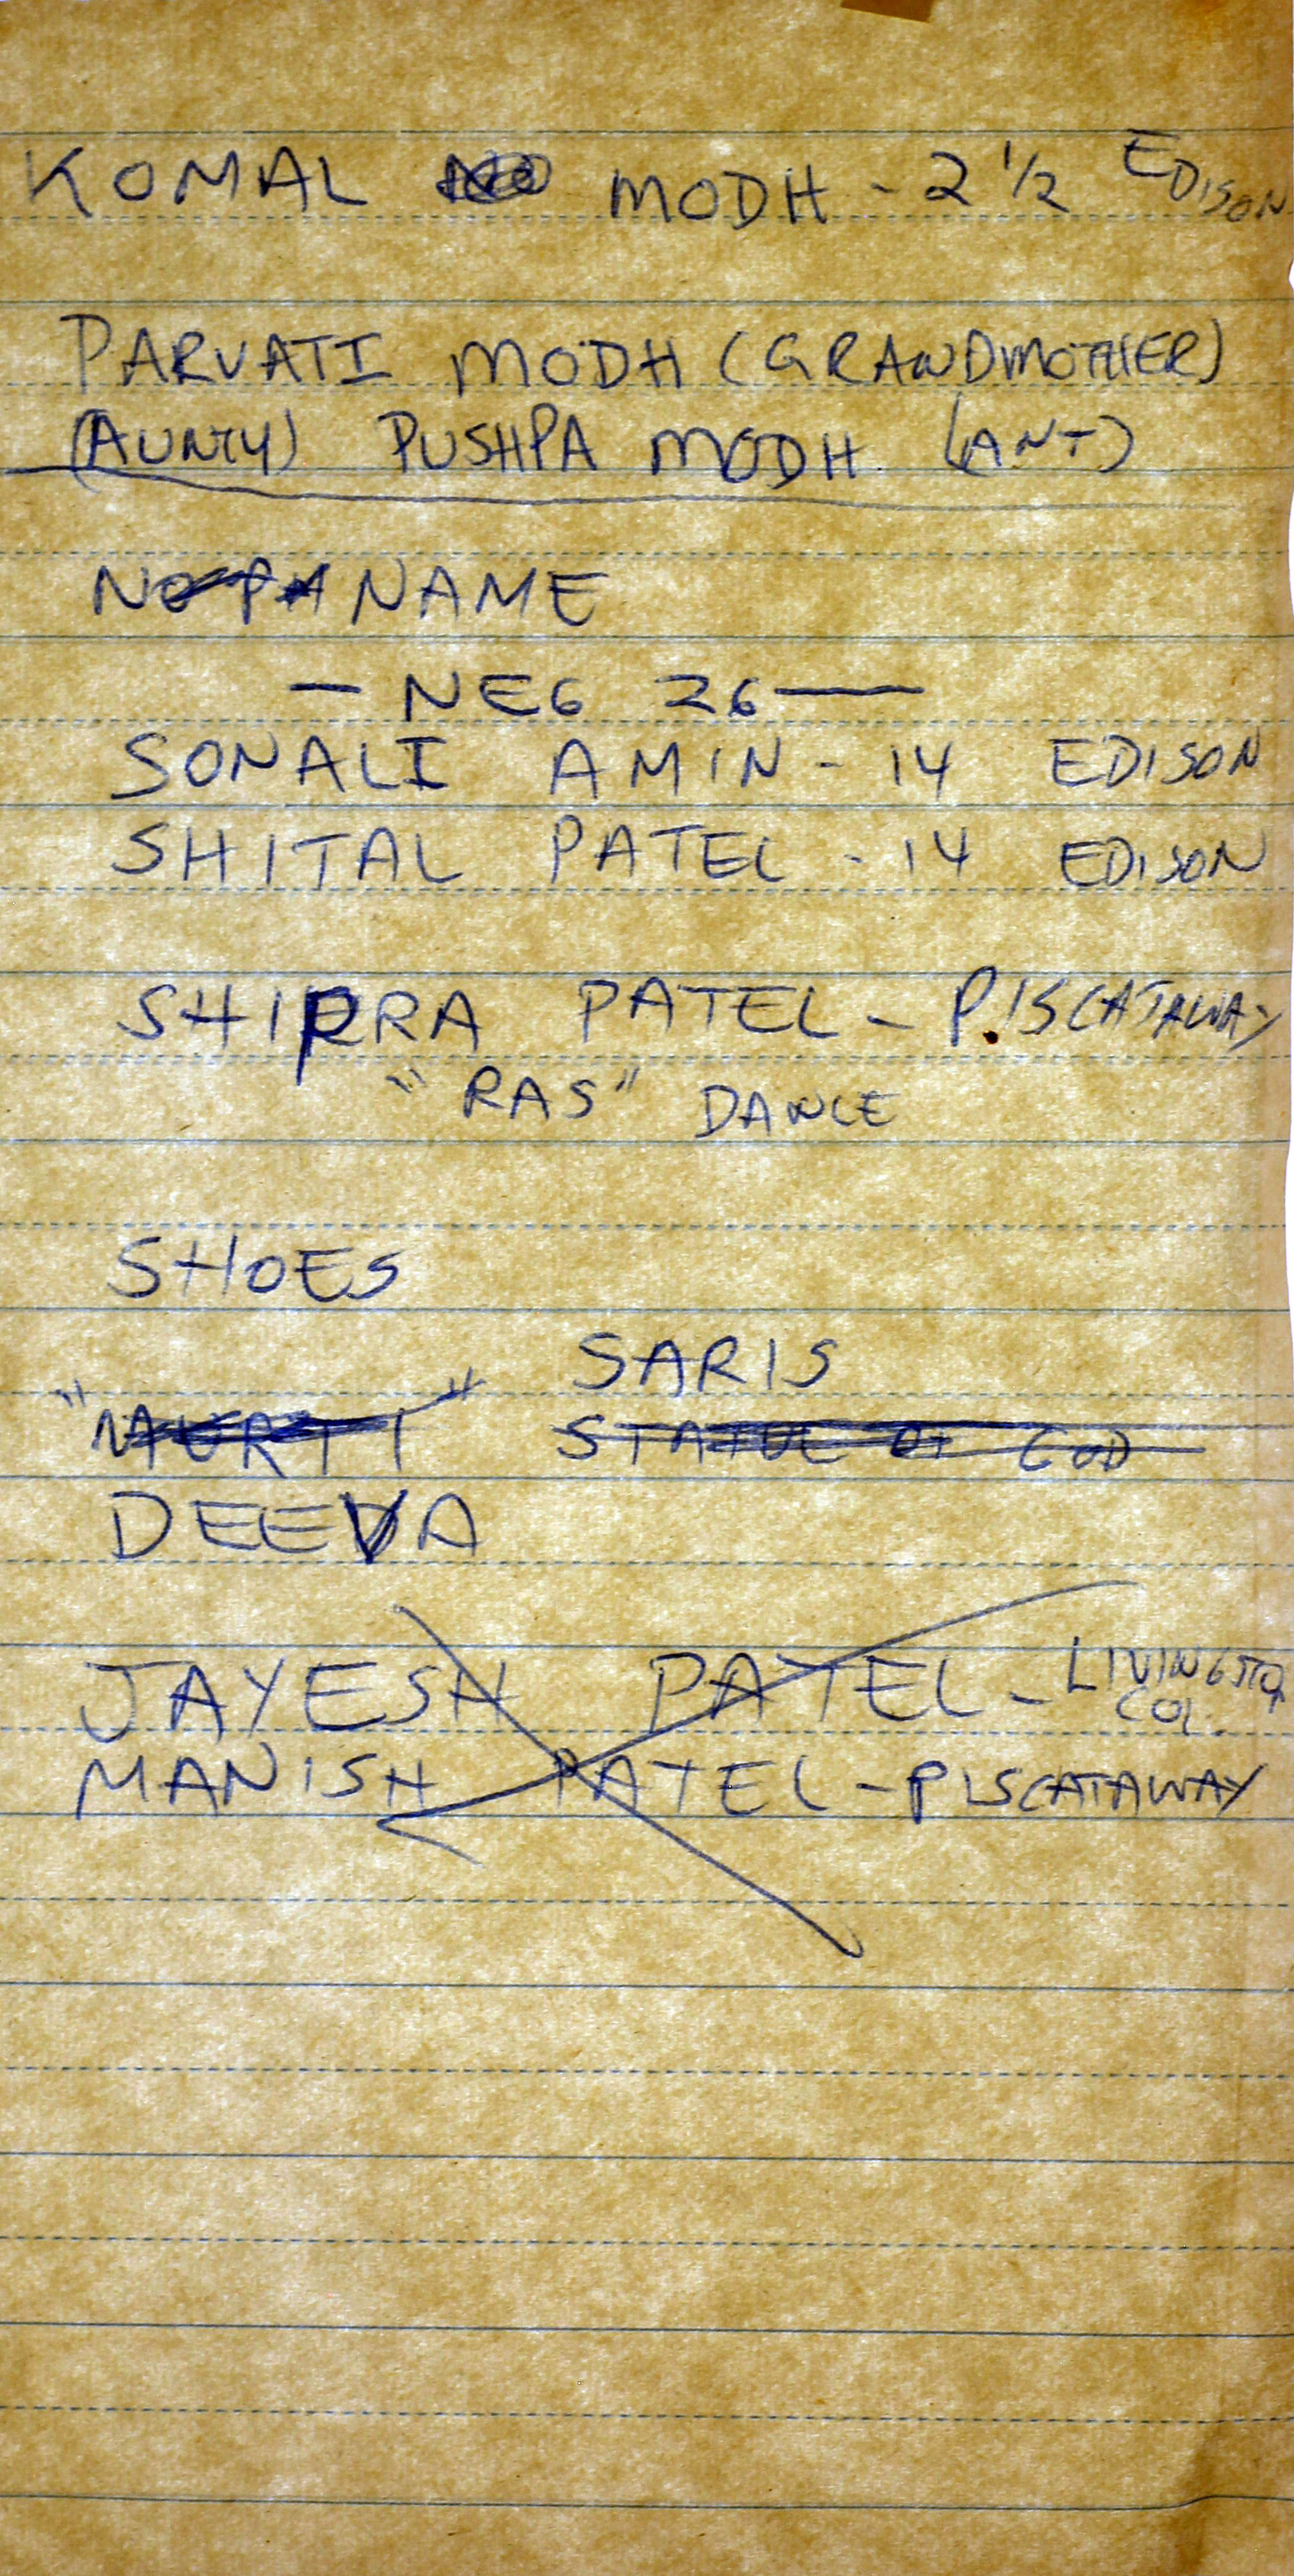 KOMAL MODH - 2 1/2 EDISON
PARVATI MODH (GRANDMOTHER)
(AUNTY) PUSHPA MODH (ANT)
NAME
— NEG 26 —
SONALI AMIN - 14 EDISON
SHITAL PATEL - 14 EDISON
SHIPRA PATEL - PISCATAWAY
"RAS" DANCE
SHOES
SARIS
"MURTI" STATUE OF GOD
DEEVA
JAYESH PATEL - LIVINGSTON
COL.
MANISH PATEL - PISCATAWAY